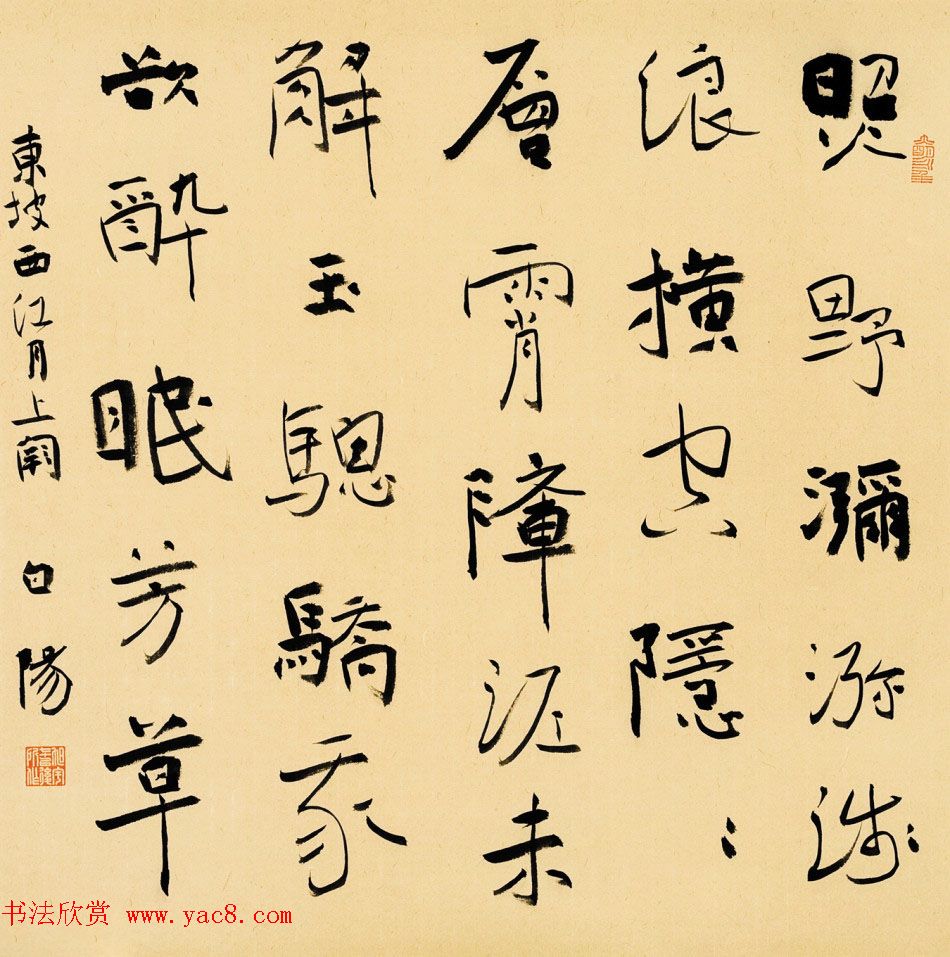 照野瀰㳽浅
浪横空隱〻
層霄障泥未
解玉驄驕我
欲酔眠芳草
東坡西江月上闋 白陽
书法欣赏 www.yac8.com